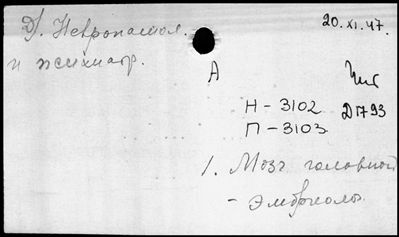 Д/. Невропатол.
и психиатр.
20.XI.47.
А
Н-3102
П-3103
Д1793
1. Мозг головной
- Эмбриолог.